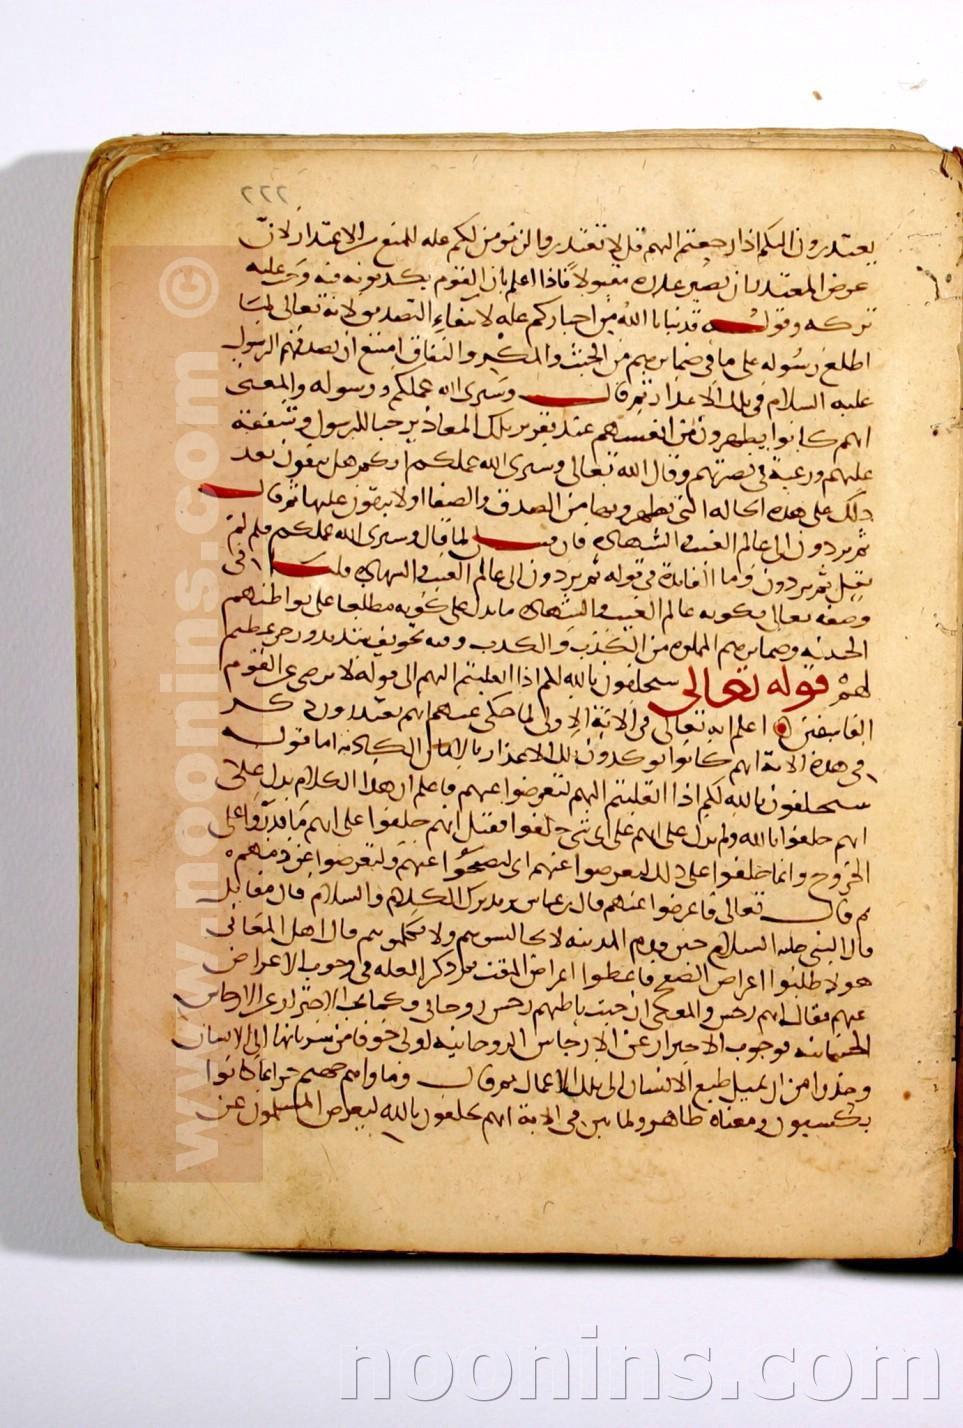 ٢٢٢
يعتذرون اليكم اذا رجعتم اليهم قل لا تعتذروا لن نومن لكم علة للمنع من الاعتذار لان
غرض المعتذر ان يصير عذره مقبولا فاذا علم بان القوم يكذبونه فيه وجب عليه
تركه وقوله قد نبانا الله من اخباركم علة لانتفاء التصديق لانه تعالى لما
اطلع رسوله على ما في ضمايرهم من الخبث والمكر والنفاق امتنع ان يصدقهم الرسول
عليه السلام في تلك الاعذار ثم قال وسيرى الله عملكم ورسوله والمعنى
انهم كانوا يظهرون من انفسهم عند تقرير تلك المعاذير حبا للرسول وشفقة
عليهم ورغبة في نصرتهم وقال الله تعالى وسيرى الله عملكم انكم هل تبقون بعد
ذلك على هذه الحالة التي تظهرونها من الصدق والصفا او لا تبقون عليها ثم قال
ثم تردون الى عالم الغيب والشهادة فان قيل لما قال وسيرى الله عملكم فلم لم
يقل ثم تردون وما الفايدة في قوله ثم تردون الى عالم الغيب والشهادة قلنا في
وصفه تعالى بكونه عالم الغيب والشهادة ما يدل على كونه مطلعا على بواطنهم
الخبيثة وضمايرهم المملوة من الكذب والكيد وفيه تخويف شديد وزجر عظيم
لهم قوله تعالى سيحلفون بالله لكم اذا انقلبتم اليهم الى قوله لا يرضى عن القوم
الفاسقين اعلم انه تعالى في الاية الاولى لما حكى عنهم انهم يعتذرون ذكر
في هذه الاية انهم كانوا يوكدون تلك الاعذار بالايمان الكاذبة اما قوله
سيحلفون بالله لكم اذا انقلبتم اليهم لتعرضوا عنهم فاعلم ان هذا الكلام يدل على
انهم حلفوا بالله ولم يدل على انهم على اي شي حلفوا فقيل انهم حلفوا على انهم ما قدروا على
الخروج وانما حلفوا على ذلك لتعرضوا عنهم اي لتصفحوا عنهم ولتعرضوا عن ذمهم
ثم قال تعالى فاعرضوا عنهم قال ابن عباس يريد ترك الكلام والسلام قال مقاتل
قال النبي عليه السلام حين قدم المدينة لا تجالسوهم ولا تكلموهم قال اهل المعاني
هولا طلبوا اعراض الصفح فاعطوا اعراض المقت ثم ذكر العلة في وجوب الاعراض
عنهم فقال انهم رجس والمعنى ان خبث باطنهم رجس روحاني وكما يجب الاحتراز عن الارجاس
الجسمانية فوجوب الاحتراز عن الارجاس الروحانية اولى خوفا من سريانها الى الانسان
وحذرا من ان يميل طبع الانسان الى تلك الاعمال ثم قال وماواهم جهنم جزا بما كانوا
يكسبون ومعناه ظاهر ولما بين في الاية انهم يحلفون بالله ليعرض المسلمون عن
www.noonins.com ©
noonins.com